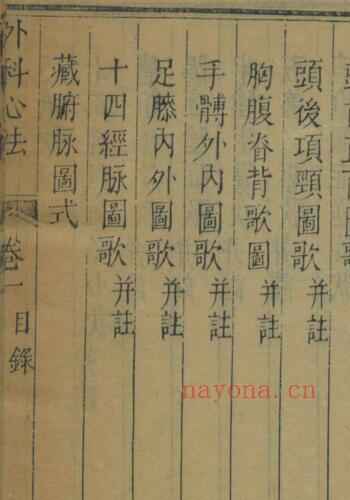 頭後項頸圖歌并註
胸腹脊背歌圖并註
手髆外内圖歌并註
足膝内外圖歌并註
十四經脉圖歌并註
藏腑脉圖式
外科心法 卷一 目錄
nayona.cn